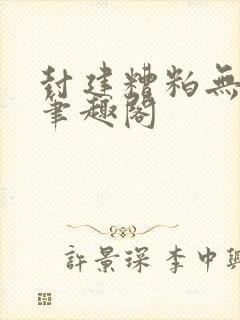 封建糟粕無
筆趣閣
許景琛 李中興